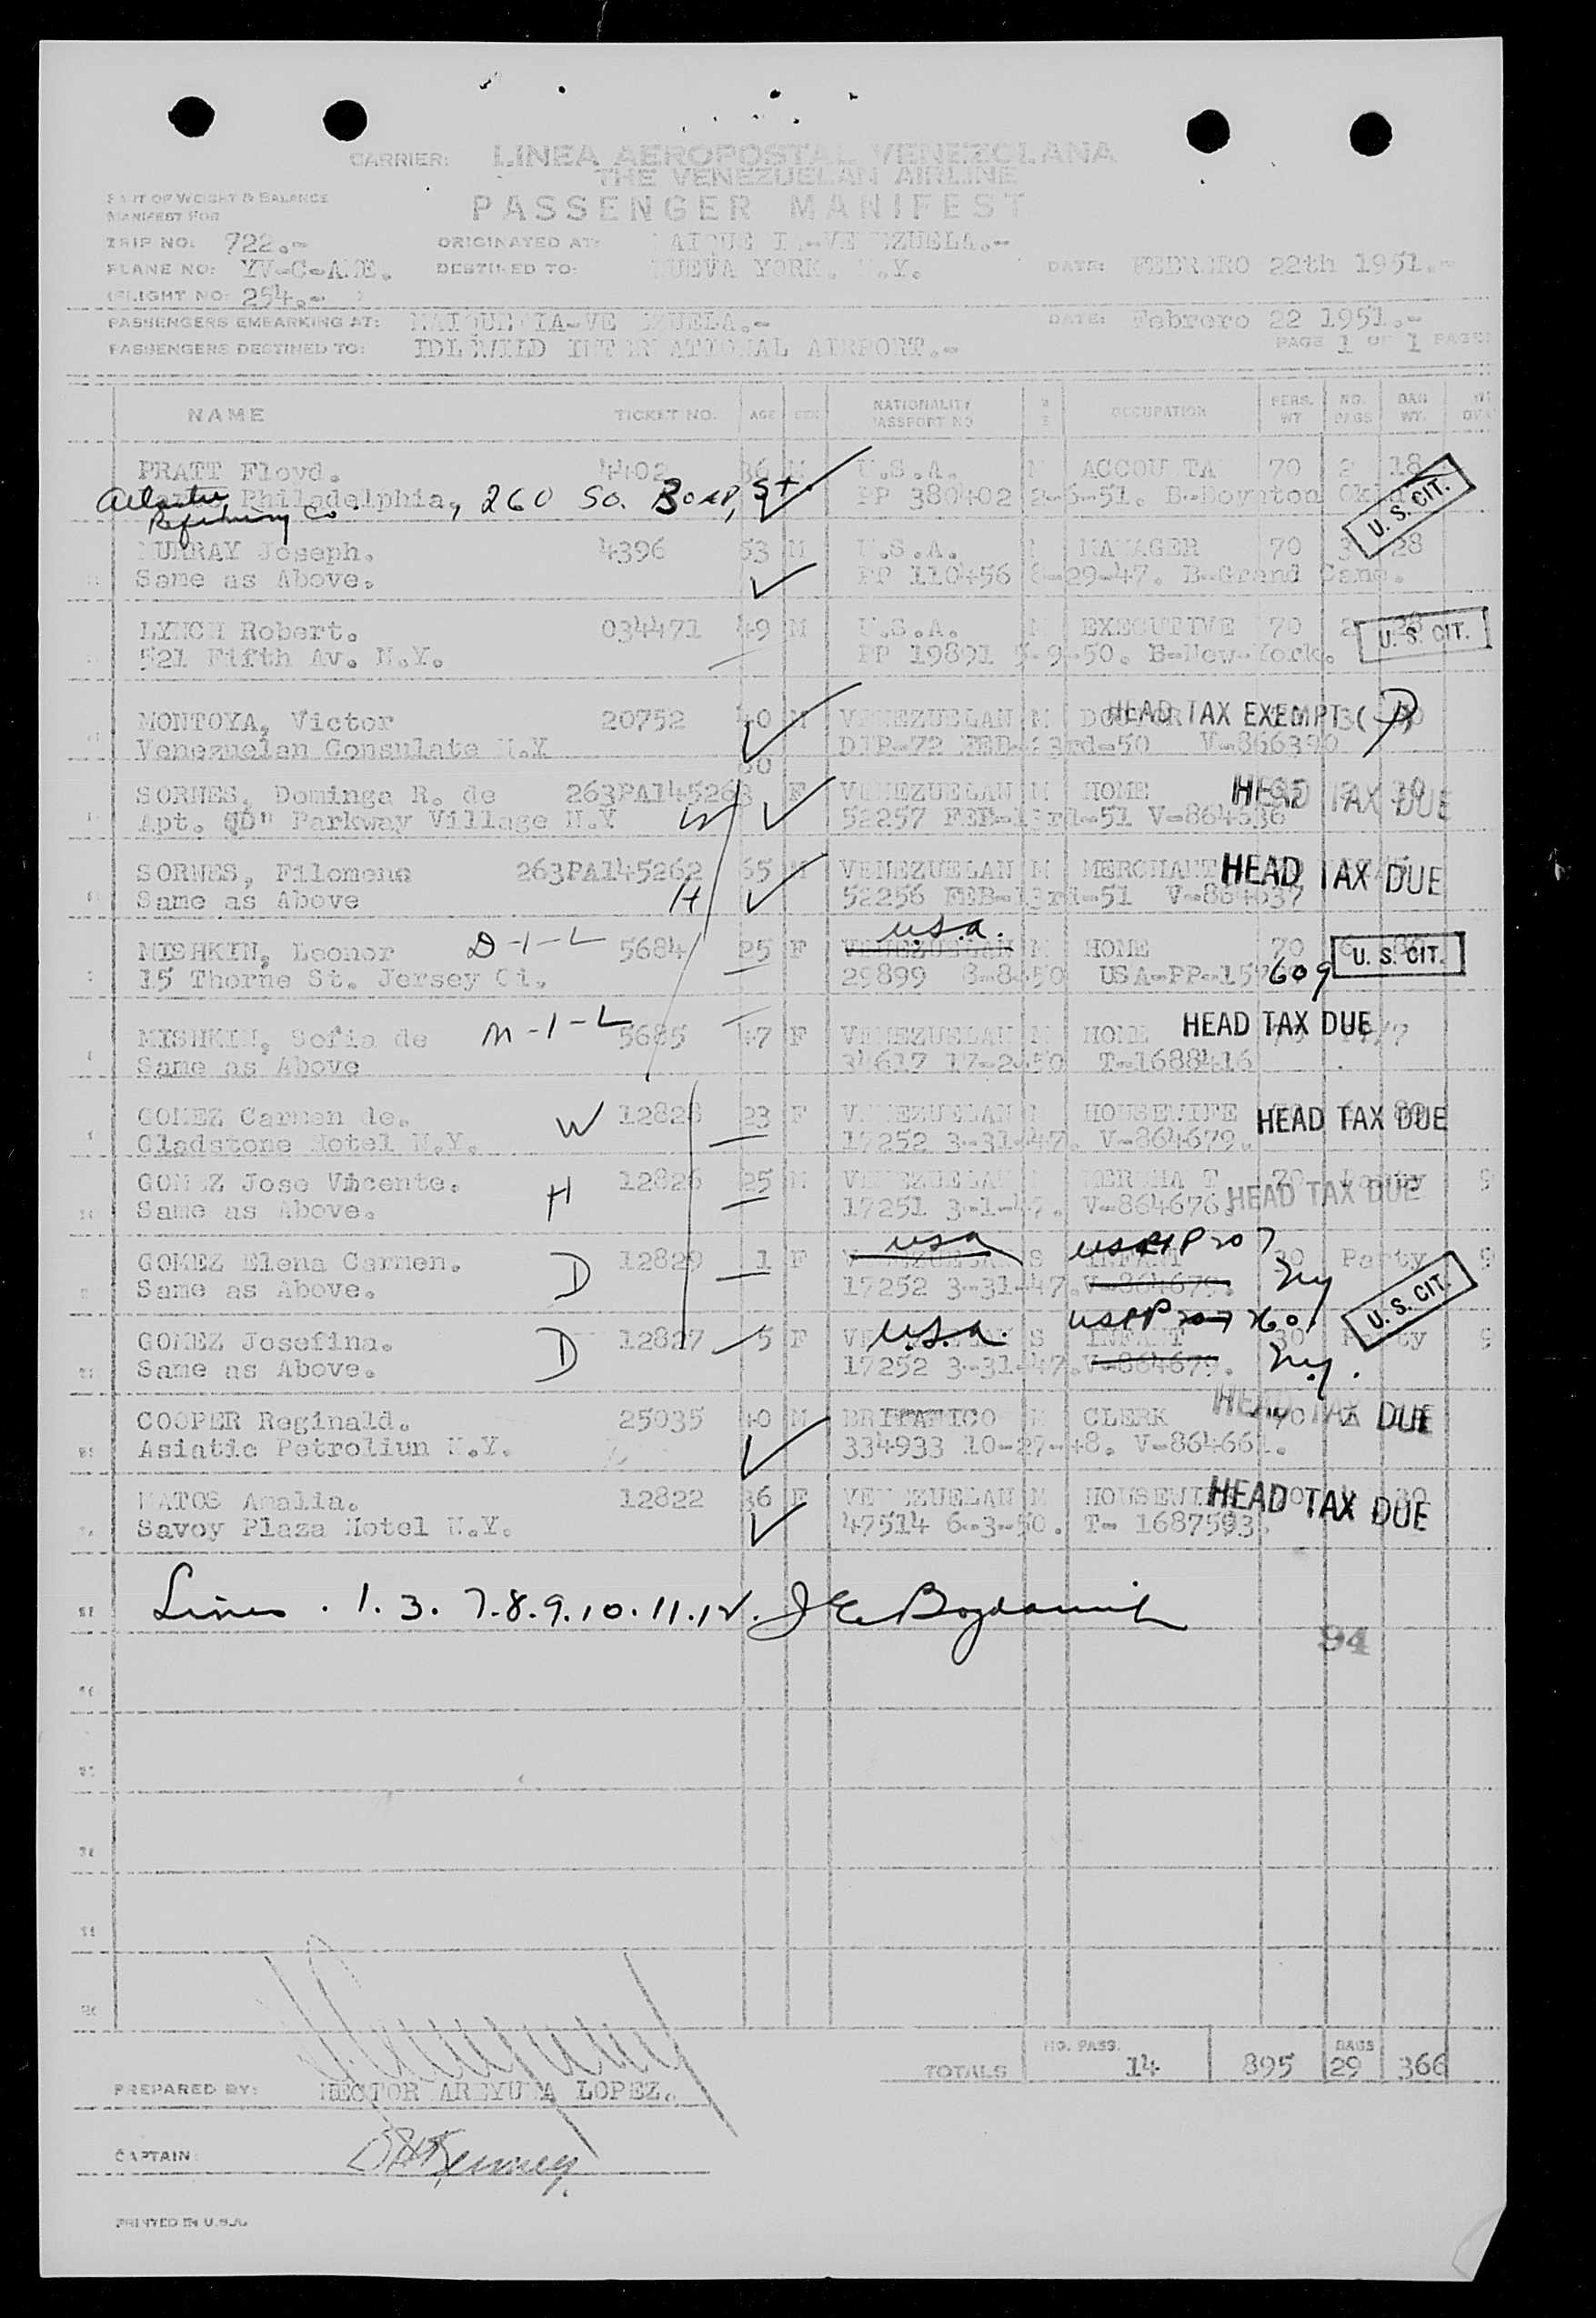 CARRIER: LINEA AEROPOSTAL VENEZOLANA
THE VENEZUELAN AIRLINE
PART OF WEIGHT & BALANCE
MANIFEST FOR
PASSENGER MANIFEST
TRIP NO: 722.- ORIGINATED AT: MAIQUETIA-VENEZUELA.-
PLANE NO: YV-C-AME. DESTINED TO: NUEVA YORK. N.Y. DATE: FEBRERO 22th 1951.-
(FLIGHT NO: 254.- )
PASSENGERS EMBARKING AT: MAIQUETIA-VENEZUELA.- DATE: Febrero 22 1951.-
PASSENGERS DESTINED TO: IDLEWILD INTERNATIONAL AIRPORT.- PAGE 1 OF 1 PAGES
NAME TICKET NO. AGE SEX NATIONALITY PASSPORT NO M S OCCUPATION PERS. WT NO. BAGS BAG WT.
PRATT Floyd. 4402 36 M U.S.A. M ACCOUNTA 70 2 18
Atlantic Philadelphia, 260 So. Broad, St. PP 380402 2-6-51. B-Boynton Okla U. S. CIT.
Refining Co.
MURRAY Joseph. 4396 53 M U.S.A. M MANAGER 70 3 28
Same as Above. PP 110456 8-29-47. B-Grand Cane.
LYNCH Robert. 034471 49 M U.S.A. M EXECUTIVE 70 2 28 U. S. CIT.
521 Fifth Av. N.Y. PP 19891 5-9-50. B-New-York.
MONTOYA, Victor 20752 40 M VENEZUELAN M DOCTOR HEAD TAX EXEMPT ( D )
Venezuelan Consulate N.Y DIP-72 FEB-23rd-50 V-866390
60
SORNES, Dominga R. de 263PA145263 F VENEZUELAN M HOME HEAD TAX DUE
Apt. "D" Parkway Village N.Y W 52257 FEB-13rd-51 V-864636
SORNES, Filomeno 263PA145262 65 M VENEZUELAN M MERCHANT HEAD TAX DUE
Same as Above H 52256 FEB-13rd-51 V-864637
u.s.a.
MISHKIN, Leonor D-1-L 5684 25 F VENEZUELAN M HOME 70 6 U. S. CIT.
15 Thorne St. Jersey Ci. 29899 8-8-50 USA-PP-157609
MISHKIN, Sofia de M-1-L 5685 47 F VENEZUELAN M HOME HEAD TAX DUE
Same as Above 34617 17-2-50 T-1688416
GOMEZ Carmen de. W 12828 23 F VENEZUELAN M HOUSEWIFE HEAD TAX DUE
Gladstone Hotel N.Y. 17252 3-31-47. V-864679.
GOMEZ Jose Vicente. H 12826 25 M VENEZUELAN MERCHANT 70 Party 9
Same as Above. 17251 3-1-47. V-864676. HEAD TAX DUE
usa USPP 207
GOMEZ Elena Carmen. D 12829 1 F VENEZUELAN S INFANT 30 Party 9
Same as Above. 17252 3-31-47. V-864679. Ny U. S. CIT.
u.s.a. USPP 207 260
GOMEZ Josefina. D 12827 5 F VENEZUELAN S INFANT 30 Party 9
Same as Above. 17252 3-31-47. V-864679. Ny.
COOPER Reginald. 25035 40 M BRITANICO M CLERK 70 2 HEAD TAX DUE
Asiatic Petroliun N.Y. 334933 10-27-48. V-864661.
MATOS Amalia. 12822 36 F VENEZUELAN M HOUSEWIFE HEAD TAX DUE
Savoy Plaza Hotel N.Y. 47514 6-3-50. T- 1687593.
Lines . 1. 3. 7. 8. 9. 10. 11. 12.
94
TOTALS NO. PASS. 14 895 BAGS 29 366
PREPARED BY: HECTOR AREYUNA LOPEZ.
CAPTAIN:
PRINTED IN U.S.A.